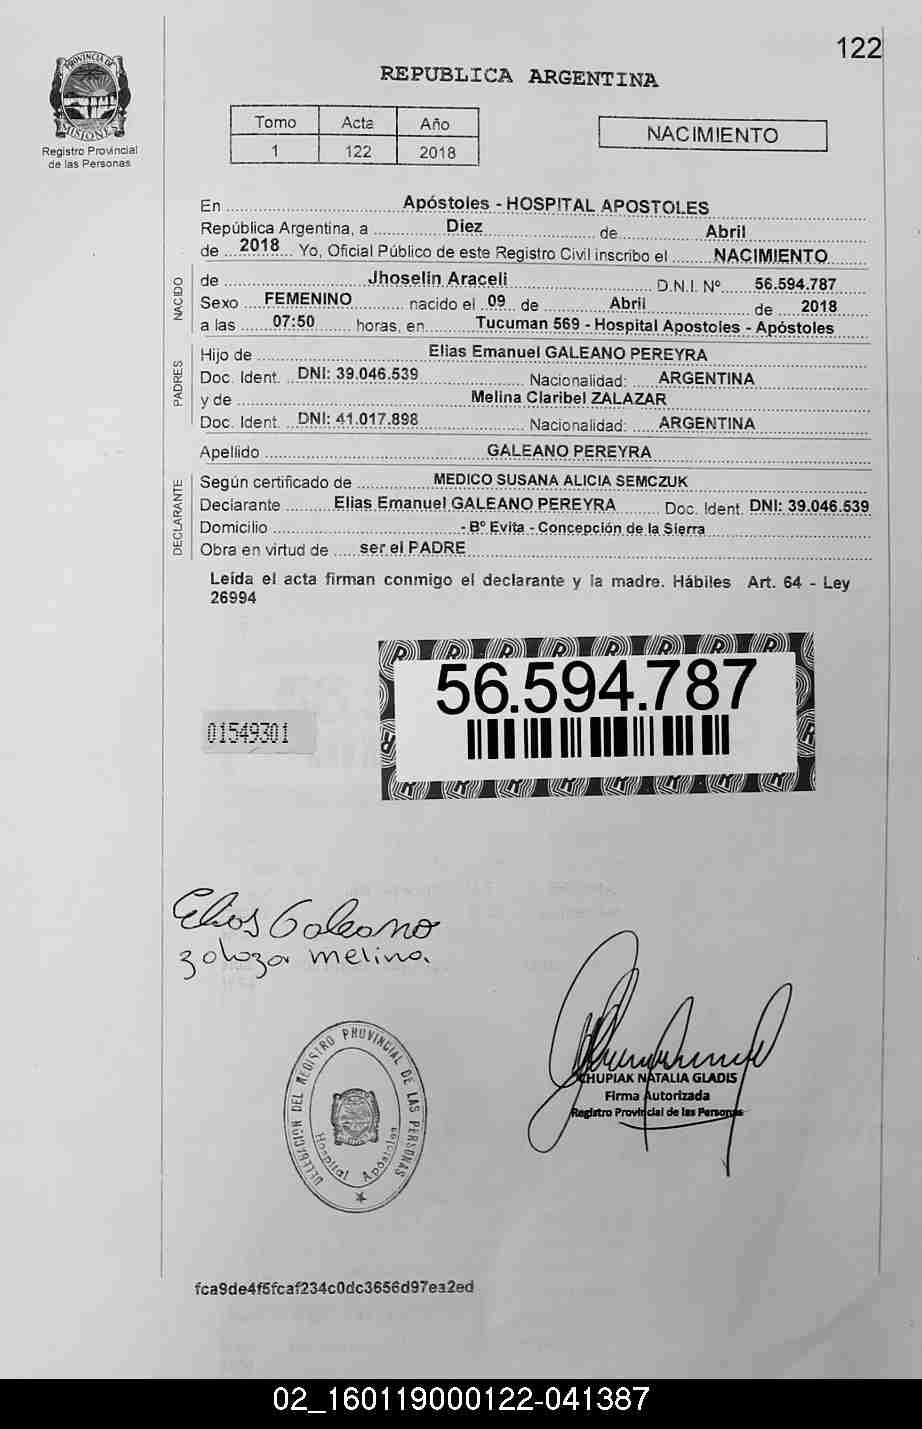 122
PROVINCIA DE
MISIONES
Registro Provincial
de las Personas
REPUBLICA ARGENTINA
Tomo Acta Año
1 122 2018
NACIMIENTO
En Apóstoles - HOSPITAL APOSTOLES
República Argentina, a Diez de Abril
de 2018 Yo, Oficial Público de este Registro Civil inscribo el NACIMIENTO
NACIDO
de Jhoselin Araceli D.N.I. Nº 56.594.787
Sexo FEMENINO nacido el 09 de Abril de 2018
a las 07:50 horas, en Tucuman 569 - Hospital Apostoles - Apóstoles
PADRES
Hijo de Elias Emanuel GALEANO PEREYRA
Doc. Ident. DNI: 39.046.539 Nacionalidad: ARGENTINA
y de Melina Claribel ZALAZAR
Doc. Ident. DNI: 41.017.898 Nacionalidad: ARGENTINA
Apellido GALEANO PEREYRA
DECLARANTE
Según certificado de MEDICO SUSANA ALICIA SEMCZUK
Declarante Elias Emanuel GALEANO PEREYRA Doc. Ident. DNI: 39.046.539
Domicilio - Bº Evita - Concepción de la Sierra
Obra en virtud de ser el PADRE
Leída el acta firman conmigo el declarante y la madre. Hábiles Art. 64 - Ley
26994
56.594.787
01549301
Elias Galeano
zalazar melina.
DELEGACION DEL REGISTRO PROVINCIAL DE LAS PERSONAS
Hospital Apóstoles
CHUPIAK NATALIA GLADIS
Firma Autorizada
Registro Provincial de las Personas
fca9de4f5fcaf234c0dc3656d97ea2ed
02_160119000122-041387